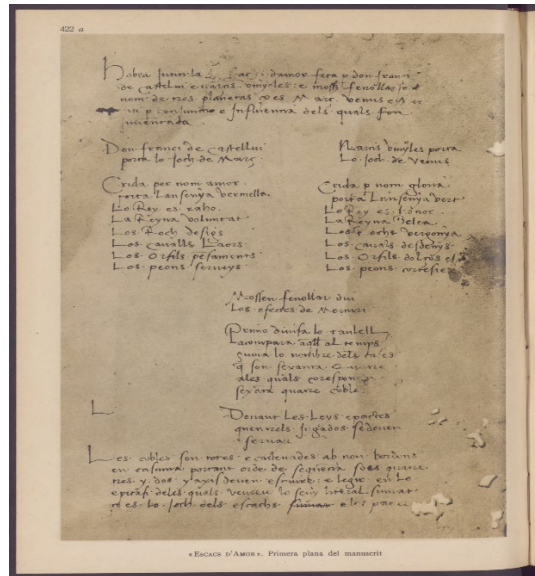 422 a
Hobra intitulada damor feta p don franci
de Castellui e narcis vinyoles e mossen fenollar
nom de tres planetas Març Venus e
e Influencia dels quals fon
inuentada
Don franci de Castellui
porta lo Joch de Març
Narcis vinyoles porta
Lo Joch de Venus
Crida per nom amor
porta Lansenya vermella
Lo Rey es raho
La Reyna voluntat
Los Roch desigs
Los Caualls Laors
Los Orfils pesaments
Los peons serueys
Crida p nom gloria
porta Lansenya vert
Lo Rey es honor
La Reyna belea
Los Rochs Vergonya
Los Caualls desdenys
Los Orfils dolços
Los peons cortesies
Mossen fenollar diu
Los efectes de Mercuri
Primo diuisa lo taulell
Lacompara aquell al temps
suma lo nombre dels
q son sexanta
ales quals corespon
sexata quatre coble
L
Deuant Les Leys e pactes
quen tels Jugados se deuen
seruar
Les cobles son totes encadenades ab nou bordons
en casuma portant orde de sequencia
tres y dos y axis deuen escriure e legir en lo
epitafi dels quals veureu lo seny literal
ço es lo Joch dels escachs
«ESCACS D'AMOR». Primera plana del manuscrit